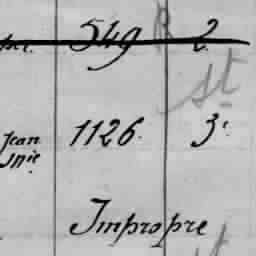 549 2.
st
Jean 1126. 3.
Mie
Impropre